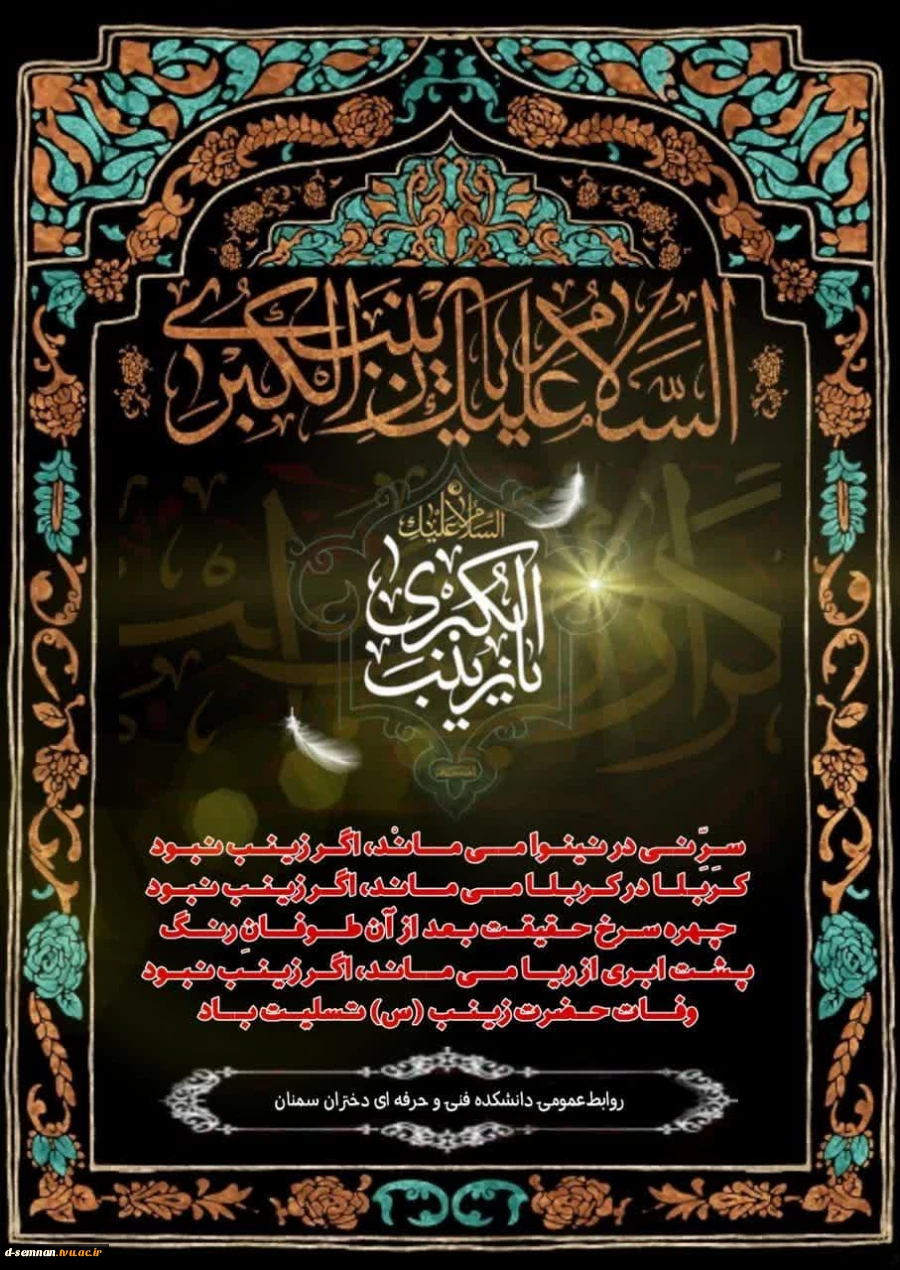 السَّلامُ عَلَيكِ يا زَينَبَ الكُبرىٰ
السلام عليك
يا زينب الكبرى
سرِّ نی در نینوا می مانْد، اگر زینب نبود
کَربَلا در کربلا می ماند، اگر زینب نبود
چهره سرخ حقیقت بعد از آن طوفانِ رنگ
پشت ابری از ریا می ماند، اگر زینب نبود
وفات حضرت زینب (س) تسلیت باد
روابط عمومی دانشکده فنی و حرفه ای دختران سمنان
d-semnan.tvu.ac.ir